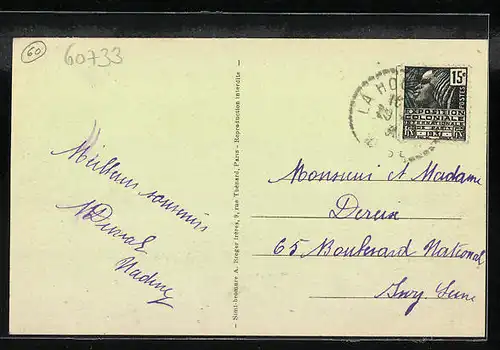 60
60733
15c
POSTES
LA HOC
EXPOSITION
COLONIALE
INTERNATIONALE
DE PARIS
1931
Meilleurs souvenirs
Nadine
Simi-bromure A. Breger frères, 9, rue Thénard, Paris - Reproduction interdite -
Monsieur et Madame
65 Boulevard National
Ivry Seine